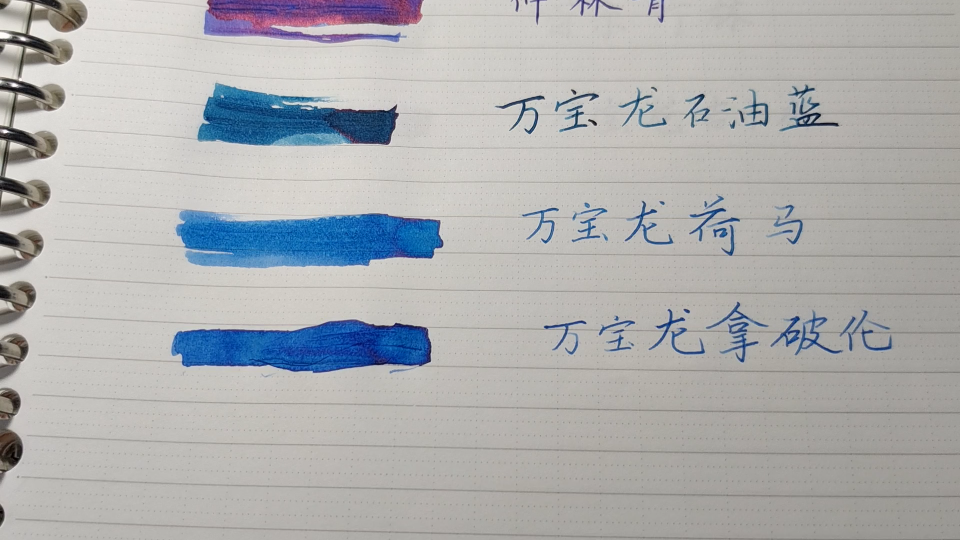 万宝龙石油蓝
万宝龙荷马
万宝龙拿破伦